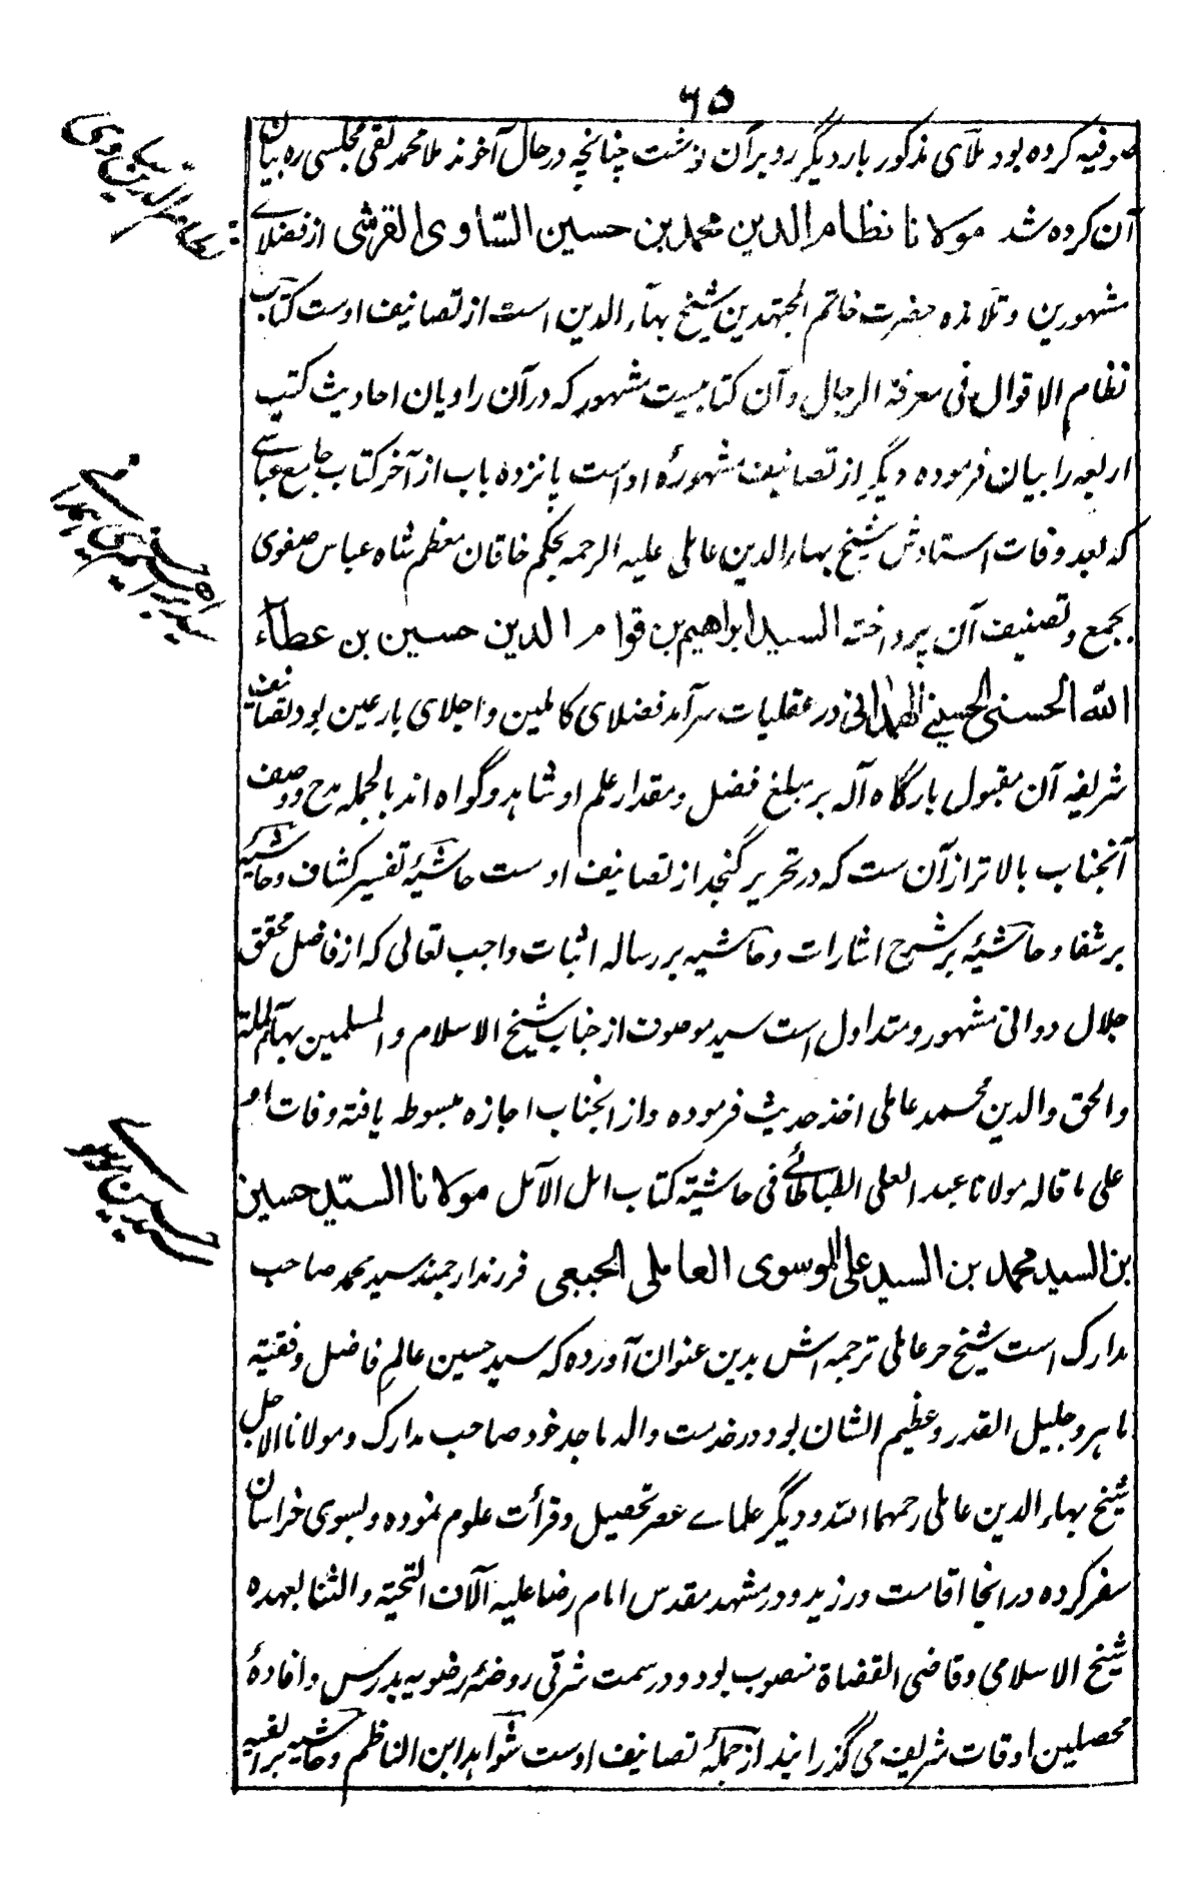 ٦٥
صوفیه کرده بود ملای مذکور بار دیگر رو بر آن نوشت چنانچه در حال آخوند ملا محمد تقی مجلسی ره بیان
آن کرده شد مولانا نظام الدین محمد بن حسین الساوی القرشی از فضلاے
مشهورین و تلامذه حضرت خاتم المجتهدین شیخ بهاء الدین است از تصانیف اوست کتاب
نظام الاقوال فی معرفة الرجال و آن کتابیست مشهور که در آن راویان احادیث کتب
اربعه را بیان فرموده دیگر از تصانیف مشهورۀ اوست پانزده باب از آخر کتاب جامع عباسے
که بعد وفات استادش شیخ بهاء الدین عاملی علیه الرحمه بحکم خاقان معظم شاه عباس صفوی
بجمع و تصنیف آن پرداخته السید ابراهیم بن قوام الدین حسین بن عطاء
الله الحسنی الحسینے الهمدانی در عقلیات سرآمد فضلای کاملین و اجلای بارعین بود تصانیف
شریفه آن مقبول بارگاه آله بر مبلغ فضل و مقدار علم او شاهد و گواه اند بالجمله مدح و وصف
آنجناب بالاتر از آن ست که در تحریر گنجد از تصانیف اوست حاشیۀ تفسیر کشاف و حاشیه
بر شفا و حاشیۀ بر شرح اشارات و حاشیه بر رساله اثبات واجب تعالی که از فاضل محقق
جلال دوانی مشهور و متداول است سید موصوف از جناب شیخ الاسلام و المسلمین بهاء الملة
والحق والدین محمد عاملی اخذ حدیث فرموده و از انجناب اجازه مبسوطه یافته وفات او
علی ما قاله مولانا عبد العلی الطباطبائے فی حاشیة کتاب امل الآمل مولانا السید حسین
بن السید محمد بن السید علی الموسوی العاملی الجبعی فرزند ارجمند سید محمد صاحب
مدارک است شیخ حر عاملی ترجمه اش بدین عنوان آورده که سید حسین عالم فاضل و فقیه
ماهر و جلیل القدر و عظیم الشان بود در خدمت والد ماجد خود صاحب مدارک و مولانا الاجل
شیخ بهاء الدین عاملی رحمهما الله و دیگر علماے عصر تحصیل و قرأت علوم نموده و بسوی خراسان
سفر کرده در انجا اقامت ورزید و در مشهد مقدس امام رضا علیه آلاف التحیة و الثنا بعهده
شیخ الاسلامی و قاضی القضاة منصوب بود و در سمت شرقی روضۀ رضویه بدرس و افادۀ
محصلین اوقات شریف می گذرانید از جملۀ تصانیف اوست شواهد ابن الناظم و حاشیه بر الفیه
نظام الدین ساوی
سید ابراهیم همدانے
سید حسین موسوے